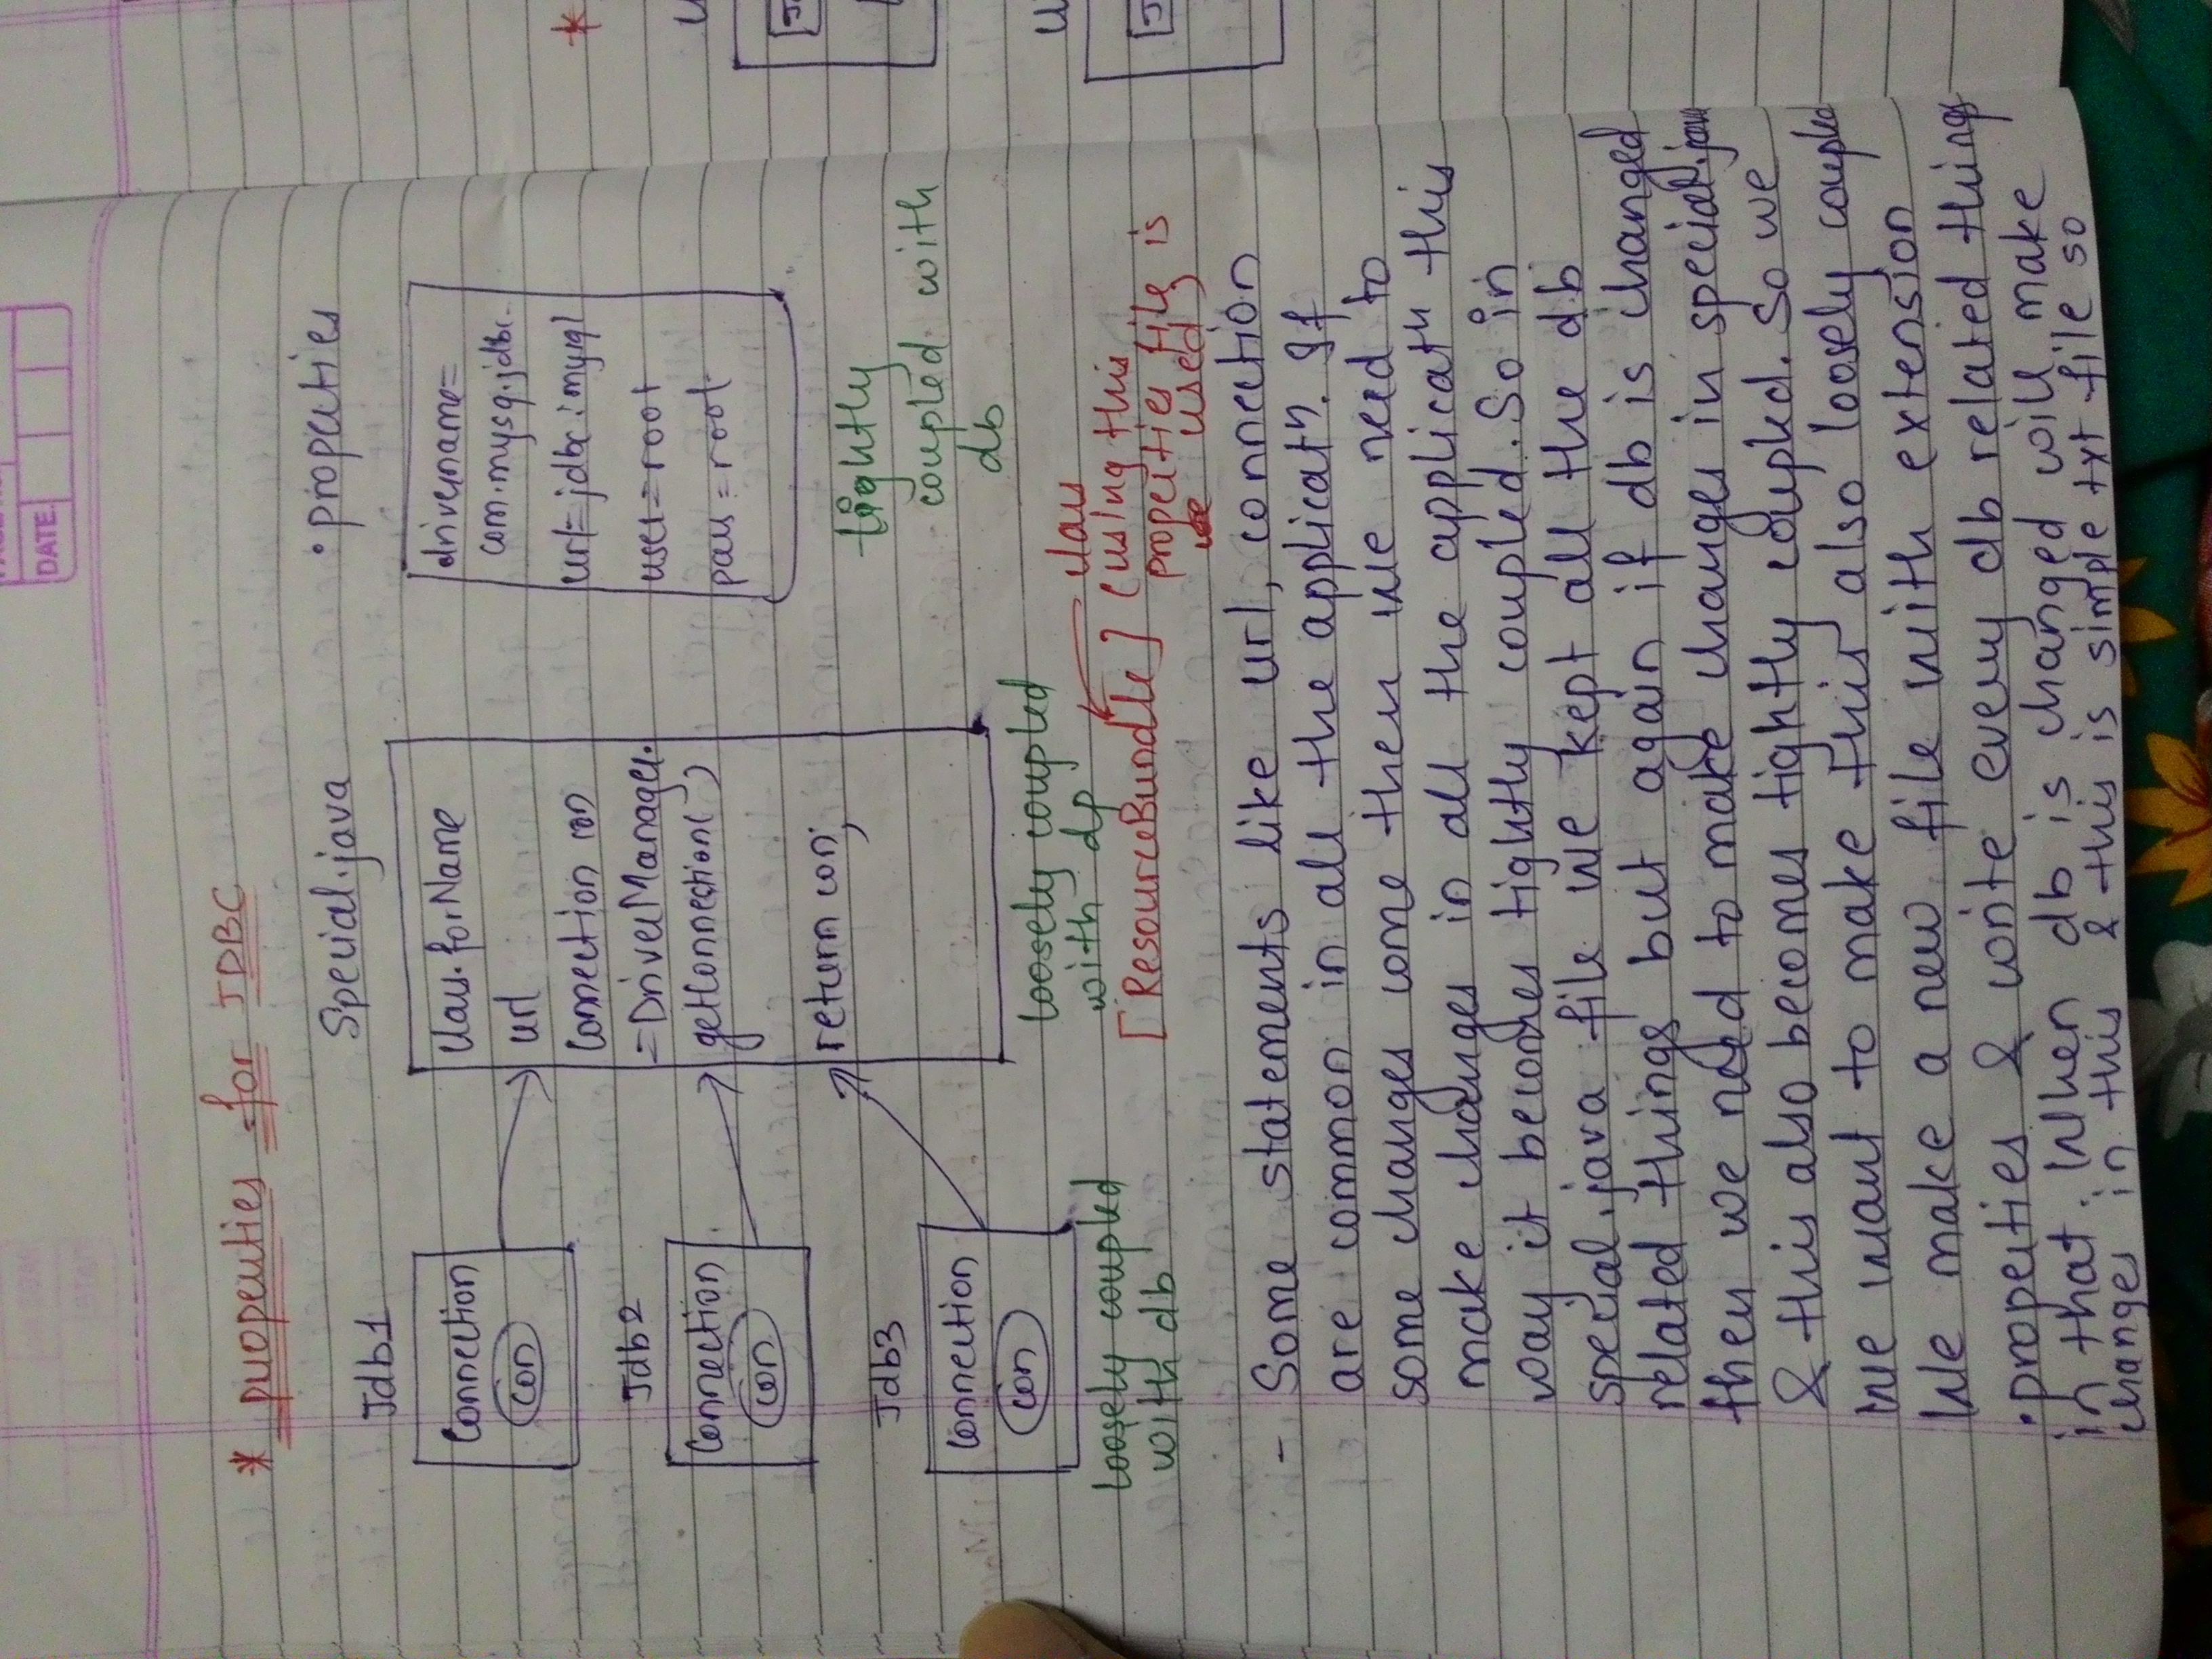 DATE.
* properties for JDBC
Jdb1
Connection
con
Jdb2
Connection
con
Jdb3
Connection
con
loosely coupled
with db
Special.java
Class.forName
url
Connection con
=DriverManager.
getConnection( )
return con;
loosely coupled
with dp
[ResourceBundle]
.properties
drivername=
com.mysq.jdbc.
url=jdbc:mysql
user=root
pass=root
tightly
coupled with
db
class
(using this
properties file is
used)
- Some statements like url, connection
are common in all the applicatn. If
some changes come then we need to
make changes in all the applicatn this
way it becomes tightly coupled. So in
special.java file we kept all the db
related things but again if db is changed
then we need to make changes in special.java
& this also becomes tightly coupled. So we
we want to make this also loosely coupled
We make a new file with extension
.properties & write every db related things
in that. When db is changed will make
changes in this & this is simple txt file so